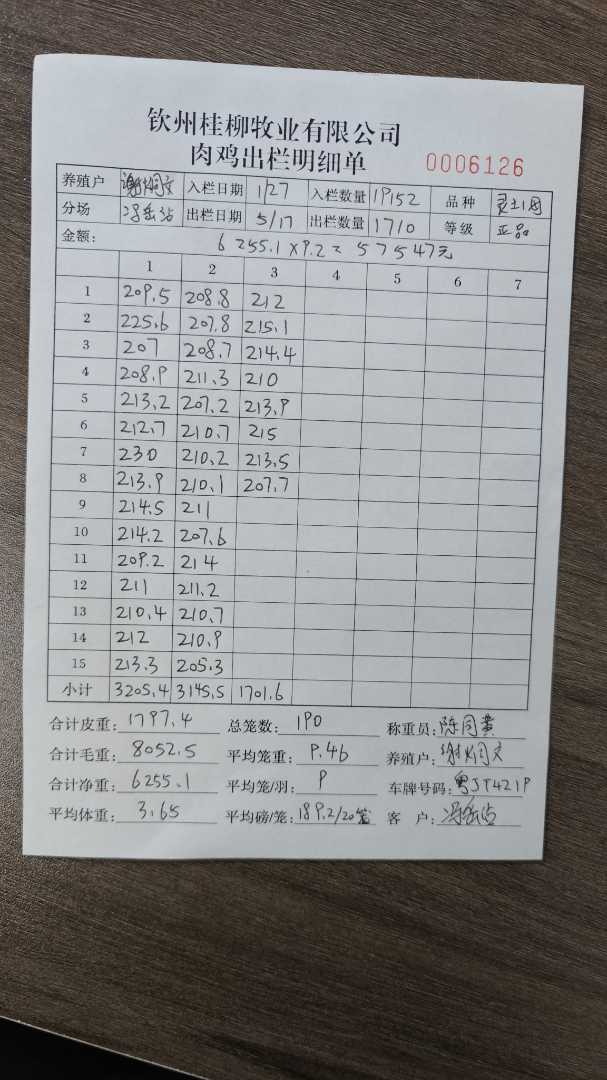 钦州桂柳牧业有限公司
肉鸡出栏明细单 0006126
养殖户 谢炳文 入栏日期 1/27 入栏数量 19152 品种 灵土1号
分场 出栏日期 5/17 出栏数量 1710 等级 正品
金额: 6255.1×9.2=57547元
1 2 3 4 5 6 7
1 209.5 208.8 212
2 225.6 207.8 215.1
3 207 208.7 214.4
4 208.9 211.3 210
5 213.2 207.2 213.9
6 212.7 210.7 215
7 230 210.2 213.5
8 213.9 210.1 207.7
9 214.5 211
10 214.2 207.6
11 209.2 214
12 211 211.2
13 210.4 210.7
14 212 210.9
15 213.3 205.3
小计 3205.4 3145.5 1701.6
合计皮重: 1797.4 总笼数: 190 称重员:
合计毛重: 8052.5 平均笼重: 9.46 养殖户:
合计净重: 6255.1 平均笼/羽: 9 车牌号码: 粤JT4219
平均体重: 3.65 平均磅/笼: 189.2/20笼 客户: